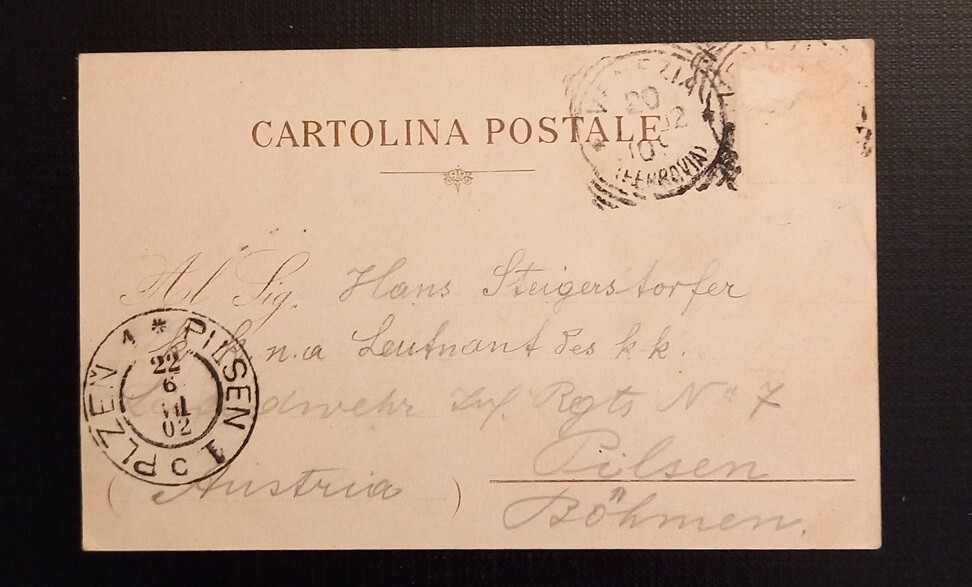 CARTOLINA POSTALE
VENEZIA
20
02
10
(FERROVIA)
Al Sig. Hans Steigerstorfer
k. k. n.a Leutnant des k k.
Landwehr Inf. Rgts Nº 7
Pilsen
(Austria)
Böhmen.
PILSEN 1
PLZEŇ 1
22
6
VII
02
C